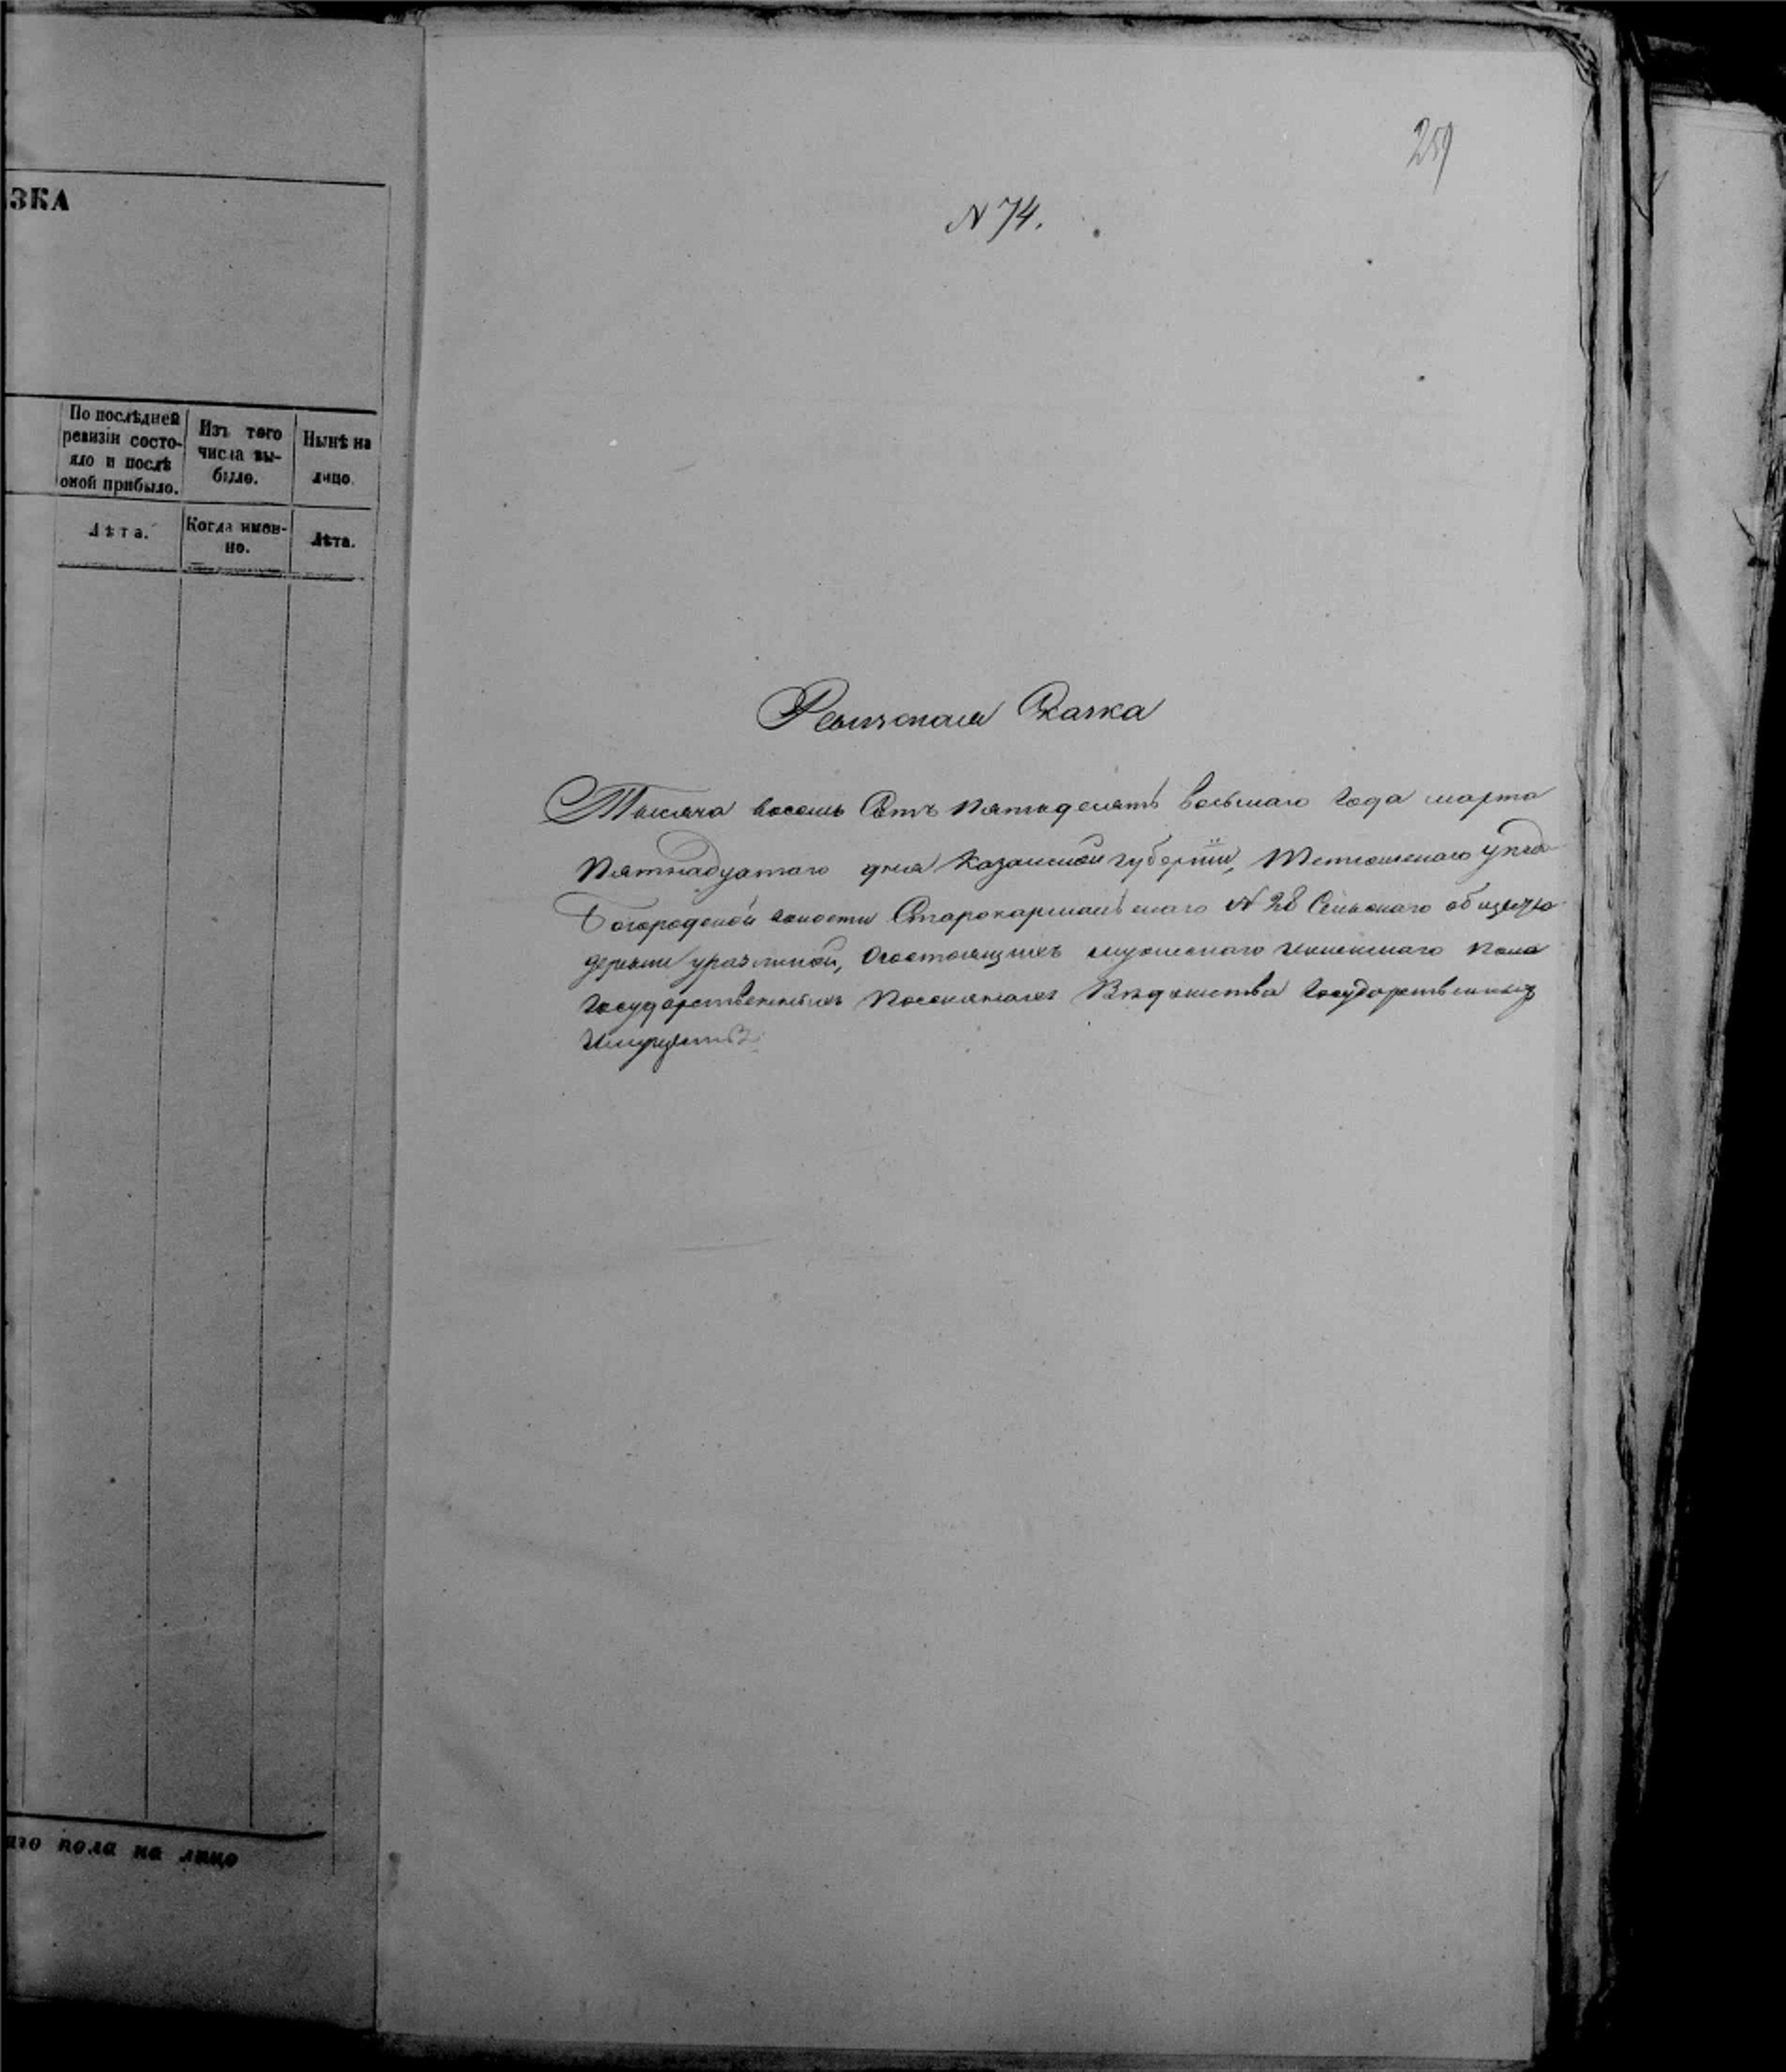 ЗКА
По послѣдней
ревизіи состо-
яло и послѣ
оной прибыло.
Изъ того
числа вы-
было.
Нынѣ на
лицо.
Лѣта.
Когда имен-
но.
Лѣта.
аго пола на лицо
259
N 74.
Ревизская Сказка
Тысяча восемь Сотъ Пятьдесятъ восьмаго Года марта
Пятнадцатаго дня Казанской губерніи, Тетюшскаго уѣзда
Богородской волости Старокармалѣевскаго N 28 Сельскаго
деревни о состоящихъ мужескаго и женскаго Пола
Государственныхъ Поселянахъ Вѣдомства Государственныхъ
Имуществъ